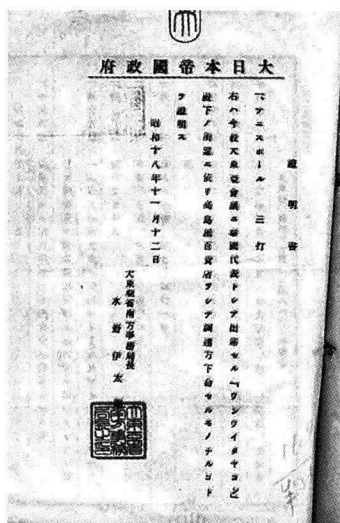 大日本帝國政府
證明書
一、テニスボール 三打
右ハ今般大東亞會議ニ泰國代表トシテ出席セル「ワンワイタヤコン」
殿下ノ ニ依リ高島屋百貨店ヲシテ調達方下命セルモノナルコト
ヲ證明ス
昭和十八年十一月十二日
大東亞省南方事務局長
水野伊太郎